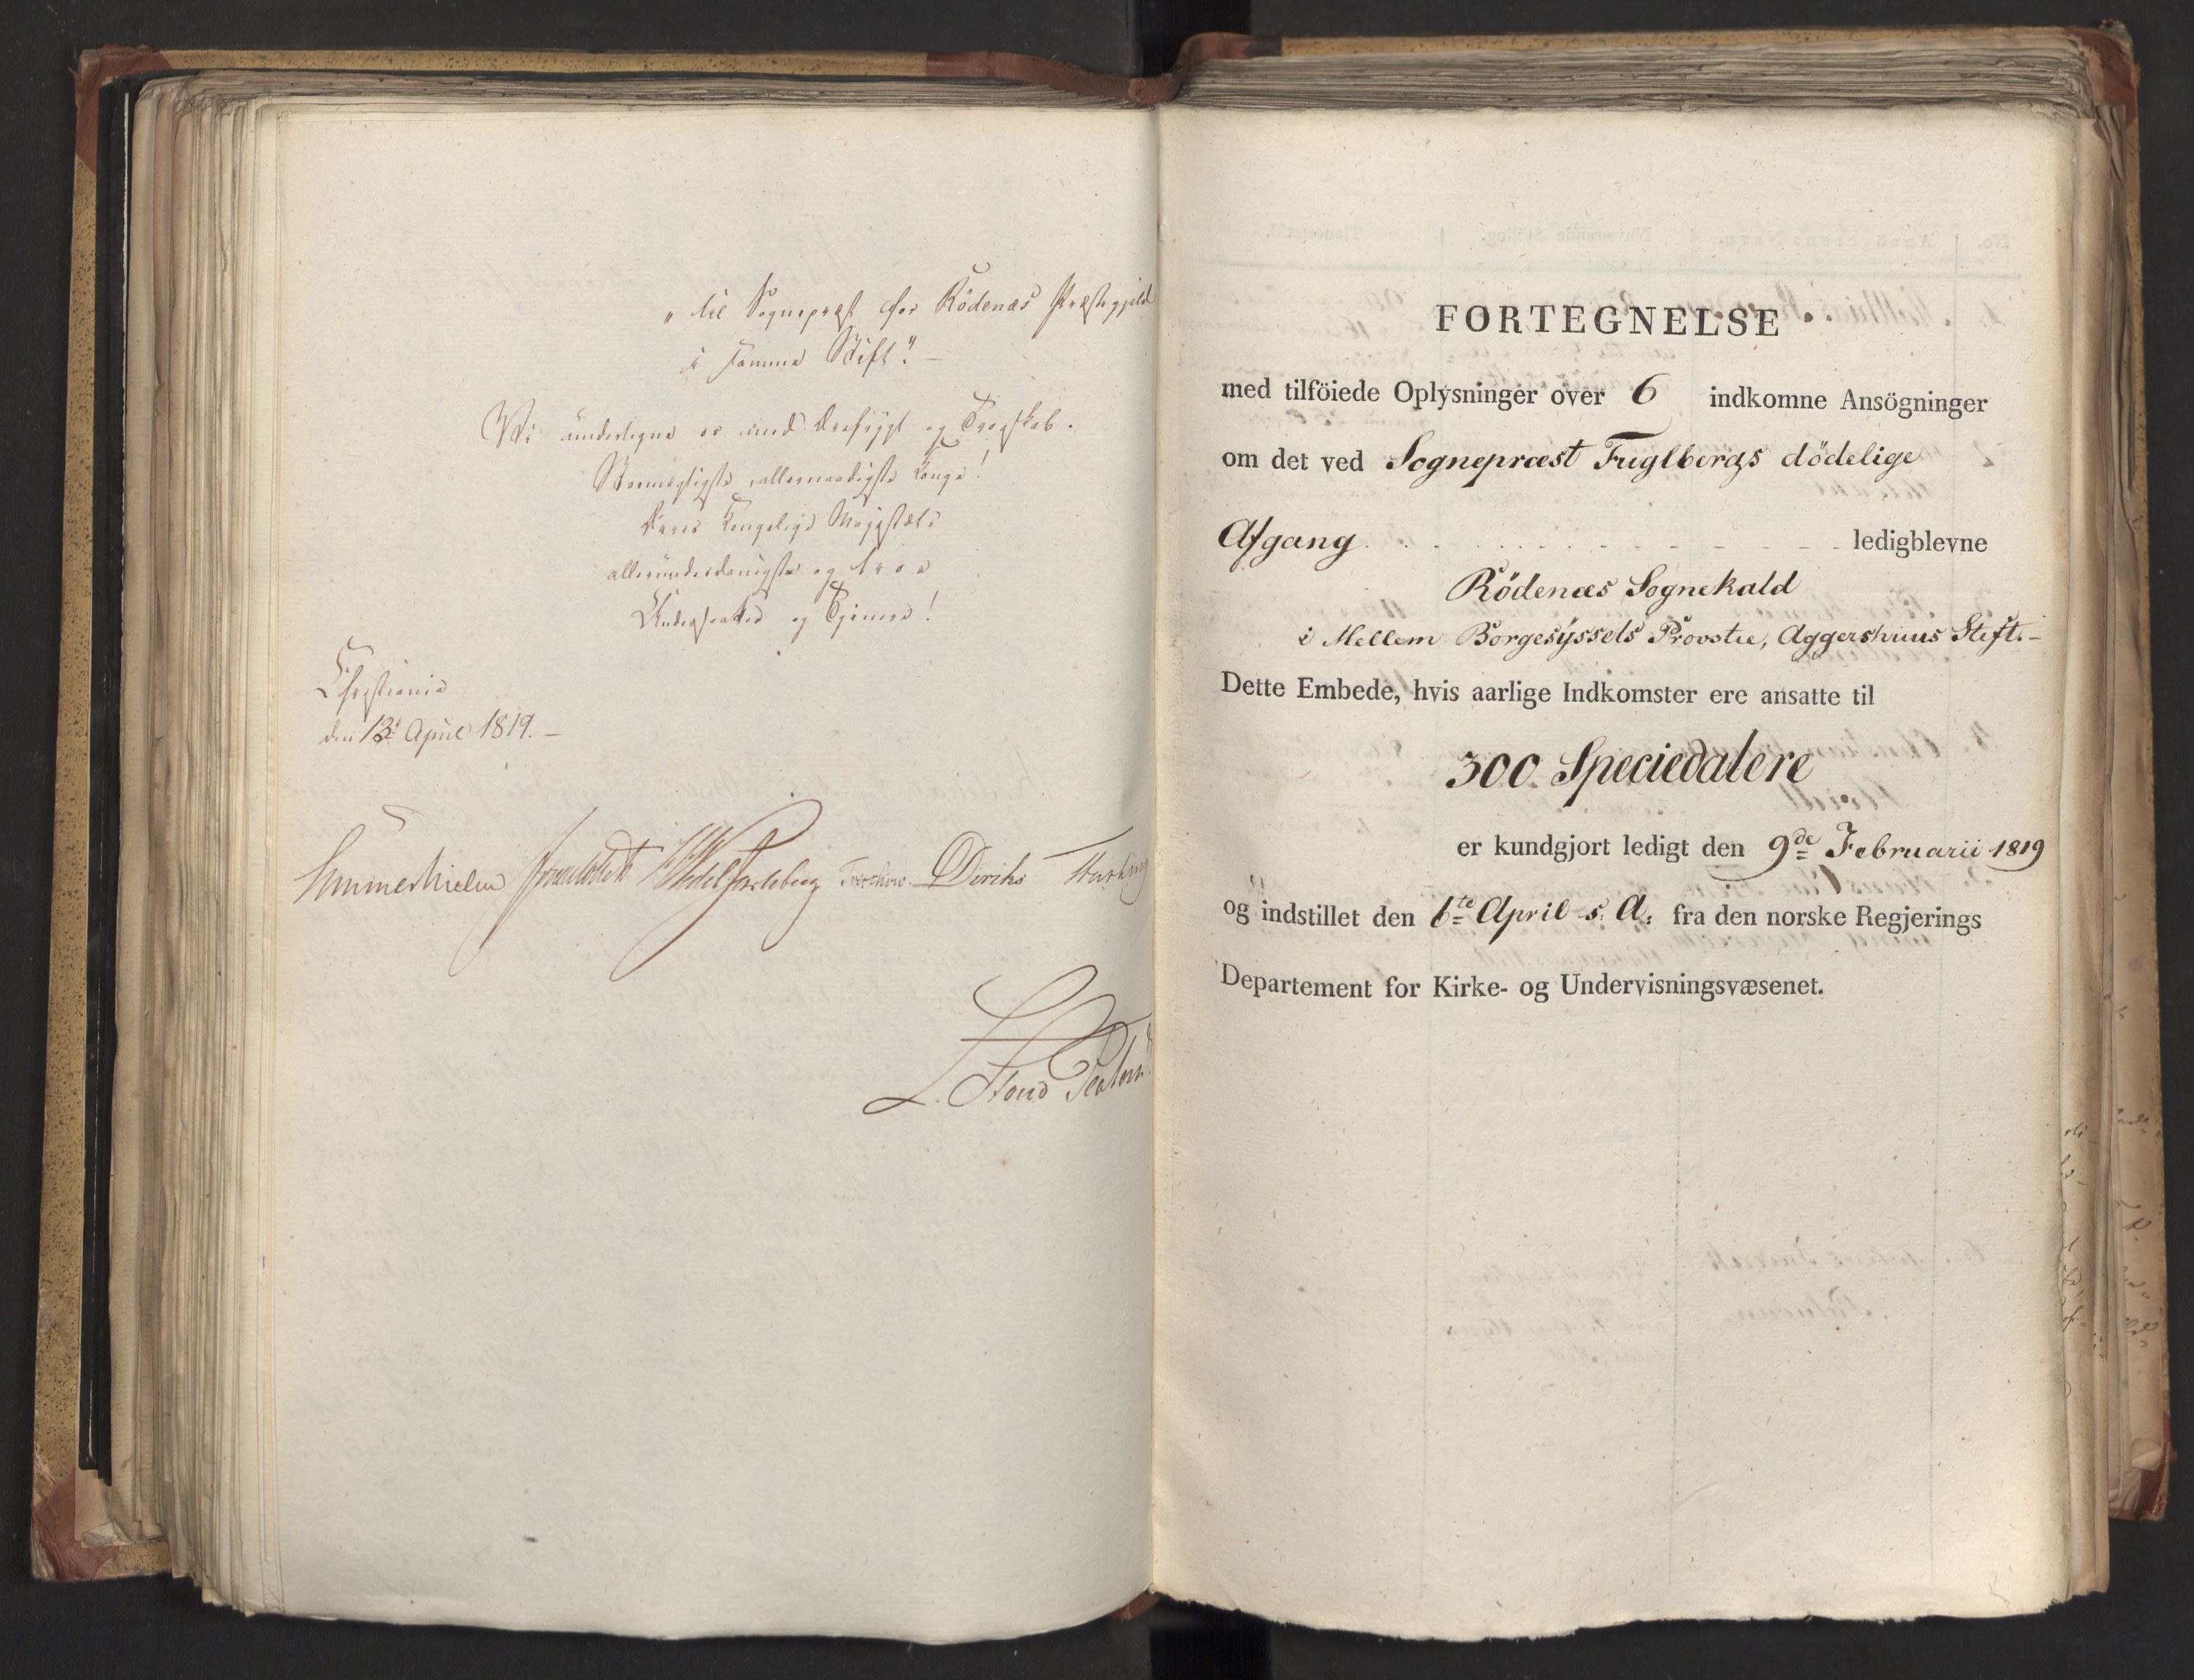 „til Sognepræst for Rödenæs Præstegjeld
i samme Stift". —
Vi undertegne os med Ærefrygt og Troskab.
Stormægtigste, allernaadigste Konge!
Deres Kongelige Majestæts
allerunderdanigste og troe
Undersaatter og Tjenere!
Christiania
den 13de April 1819. —
Sommerhielm Wedel Jarlsberg Treschow Diriks
L. Stoud Platou
FORTEGNELSE
med tilföiede Oplysninger over 6 indkomne Ansögninger
om det ved Sognepræst Fuglbergs dödelige
Afgang ledigblevne
Rödenæs Sognekald
i Mellem Borgesyssels Provstie, Aggershuus Stift. –
Dette Embede, hvis aarlige Indkomster ere ansatte til
300 Speciedalere
er kundgjort ledigt den 9de Februarii 1819
og indstillet den 6te April s. A. fra den norske Regjerings
Departement for Kirke- og Undervisningsvæsenet.